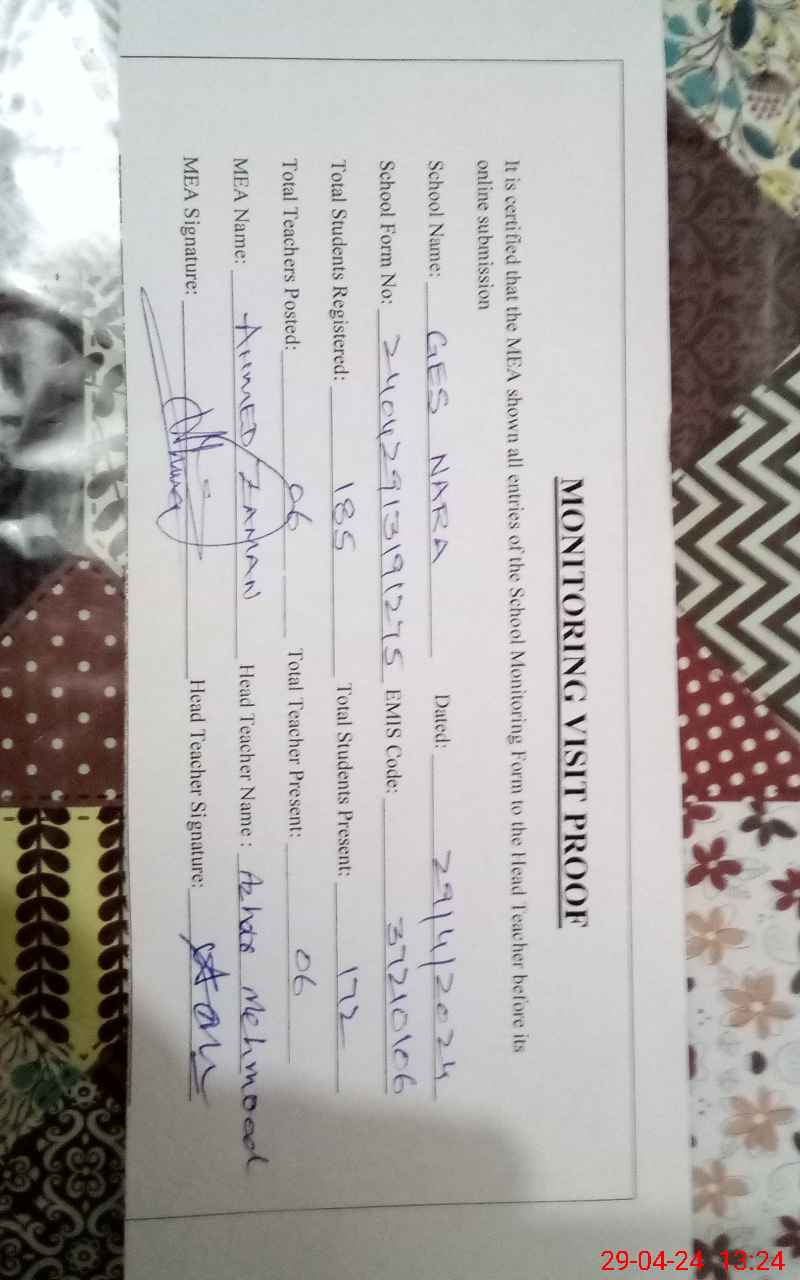 MONITORING VISIT PROOF
It is certified that the MEA shown all entries of the School Monitoring Form to the Head Teacher before its
online submission
School Name: GES NARA Dated: 29/4/2024
School Form No: 24042913191275 EMIS Code: 37210106
Total Students Registered: 185 Total Students Present: 172
Total Teachers Posted: 06 Total Teacher Present: 06
MEA Name: AHMED ZAMAN Head Teacher Name : Azhar Mehmood
MEA Signature: Head Teacher Signature:
29-04-24 13:24